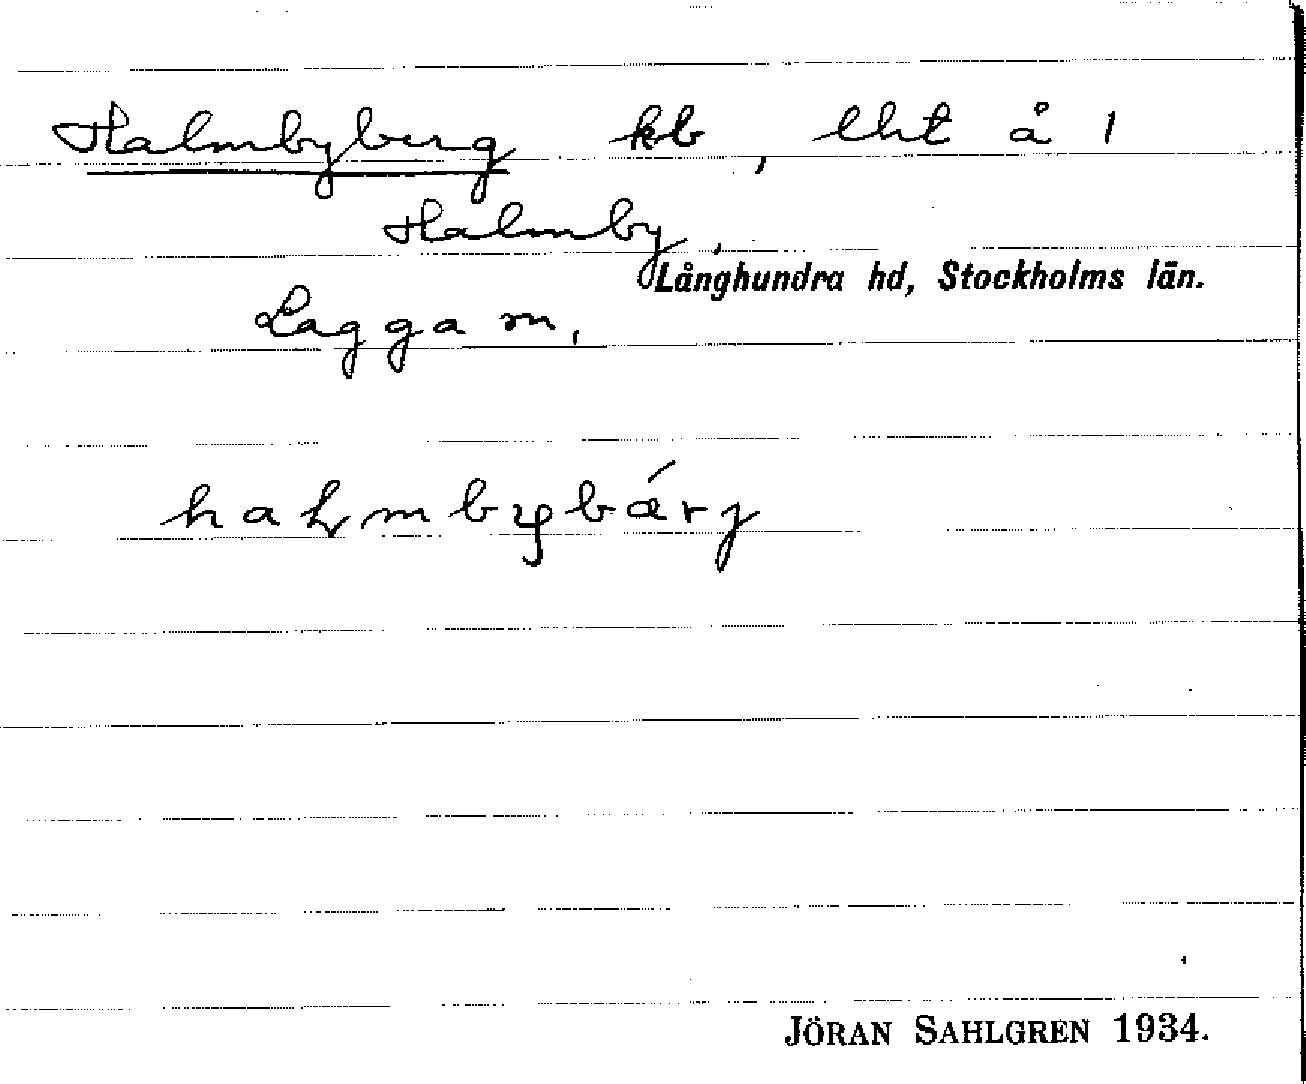 Halmbyberg kb, lht å 1
Halmby,
Långhundra hd, Stockholms län.
Lagga sn,
JÖRAN SAHLGREN 1934.